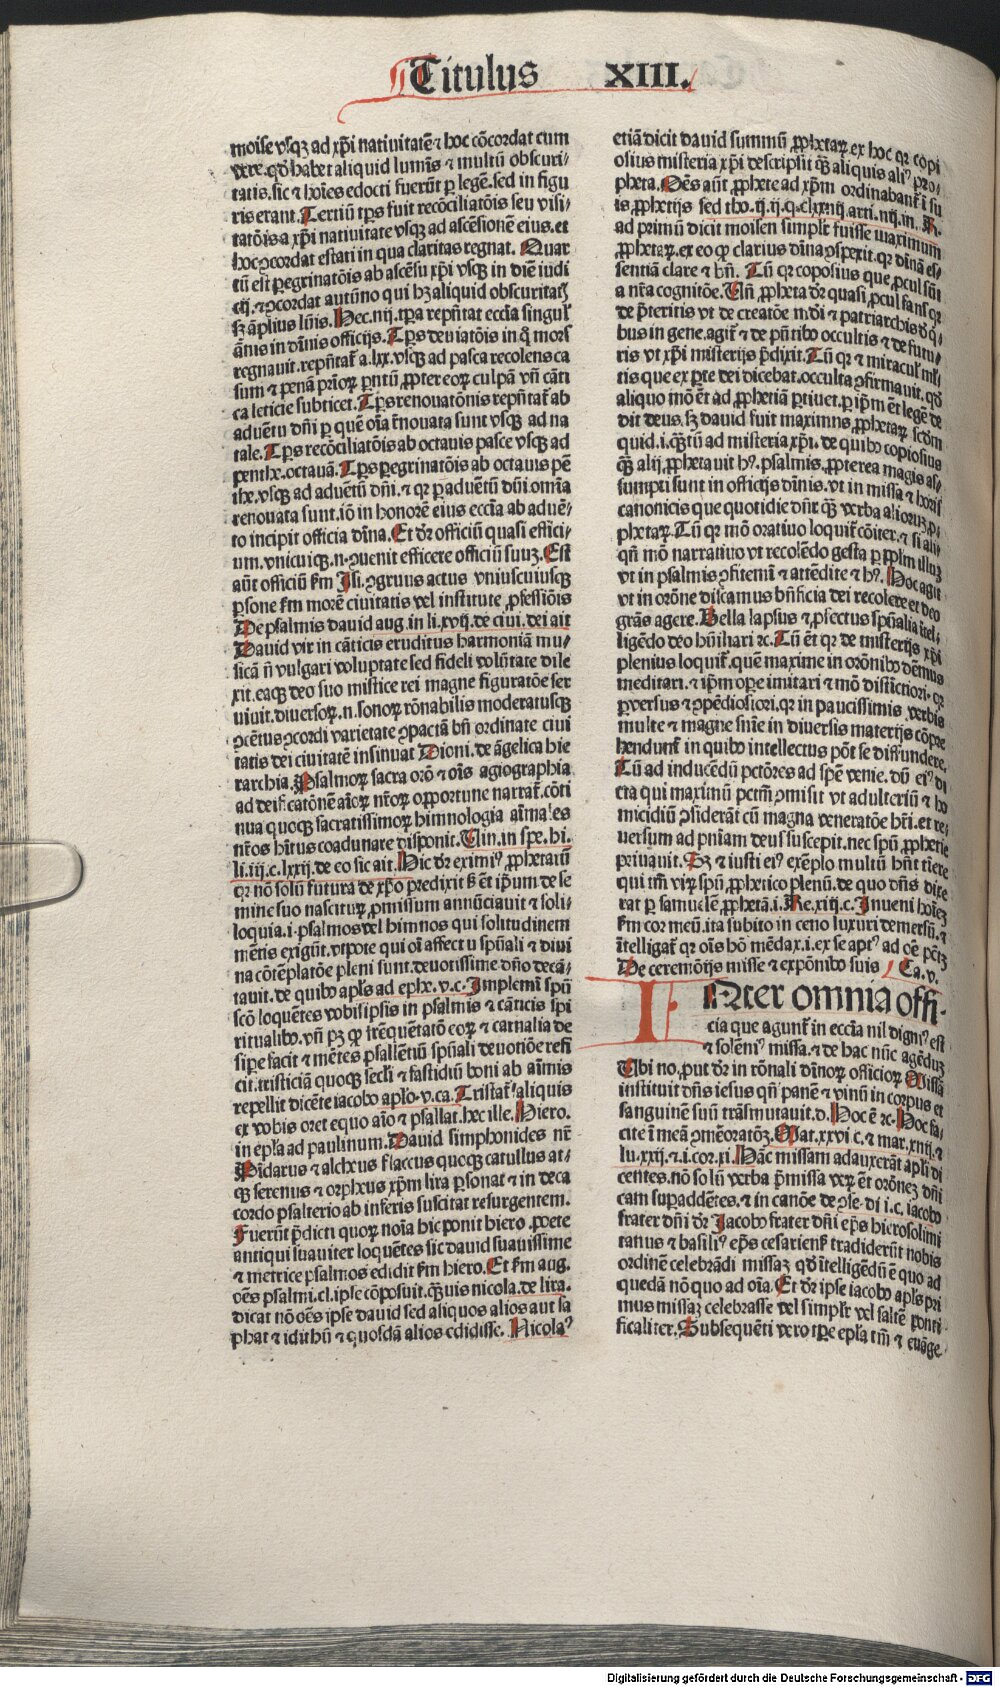 Titulus XIII.
moise vsqꝫ ad xp̄i nativitatē ⁊ hoc cōcordat cum
vere. qd̄ habet aliquid lumīs ⁊ multū obscuri-
tatis. sic ⁊ hoīes edocti fuerūt ꝑ legē. sed in figu
ris erant. Tertiū tp̄s fuit recōciliatōis seu visi-
tatōis a xp̄i nativitate vsqꝫ ad ascēsionē eius. et
hoc ꝯcordat estati in qua claritas regnat. Quar
tū est ꝑegrinatōis ab ascēsu xp̄i vsqꝫ in diē iudi
cij. ⁊ ꝯcordat autūno qui hꝫ aliquid obscuritatꝭ
sꝫ āplius lūis. Hec .iiij. tꝑa rep̄ntat eccīa singul̓
ānis in dīnis officijs. Tp̄s deuiatōis in q̊ mors
regnauit. rep̄ntat̄ a .lxx. vsqꝫ ad pasca recolens ca
sum ⁊ penā prīoꝝ ꝑntū ꝓpter eoꝝ culpā vn̄ cāti
ca leticie subticet. Tp̄s renouatōnis rep̄ntat̄ ab
aduētu dn̄i ꝑ quē oīa r̄nouata sunt vsqꝫ ad na
tale. Tp̄s recōciliatōis ab octauis pasce vsqꝫ ad
penthe. octauā. Tp̄s ꝑegrinatōis ab octauis pē
the. vsqꝫ ad aduētū dn̄i. ⁊ qꝛ ꝑ aduētū dn̄i omīa
renouata sunt. iō in honorē eius eccīa ab aduē-
to incipit officia dīna. Et dr̄ officiū quasi effici-
um. vnicuiqꝫ .n. ꝯuenit efficere officiū suuꝫ. Est
aūt officiū ẜm Isi. ꝯgruus actus vniuscuiusqꝫ
ꝑsone ẜm morē ciuitatis vel institute ꝓfessiōis
De psalmis dauid aug. in li. xvij. de ciui. dei ait
Dauid vir in cāticis eruditus harmoniā mu-
sicā n̄ vulgari voluptate sed fideli volūtate dile
xit. eaqꝫ deo suo mistice rei magne figuratōe ser
uiuit. diuersoꝝ .n. sonoꝝ rōnabilis moderatusqꝫ
ꝯcētus ꝯcordi varietate ꝯpactā bn̄ ordinate ciui
tatis dei ciuitatē insinuat Dioni. de āgelica hie
rarchia. Psalmoꝝ sacra orō ⁊ oīs agiographia
ad deificatōnē aīoꝝ nr̄oꝝ oꝑportune narrat̄. cōti
nua quoqꝫ sacratissimoꝝ himnologia aīmales
nr̄os hītus coadunare disponit. Vin. in spe. hi.
li. iij. c. lxxij. de eo sic ait. Hic dr̄ eximiꝰ ꝓphetarū
qꝛ nō solū futura de xp̄o predixit s̄ et ip̄um de se
mine suo nasciturꝝ ꝓmissum annūciauit ⁊ soli-
loquia. i. psalmos vel himnos qui solitudinem
mētis exigūt. vtpote qui oī affectu spūali ⁊ diui
na cōtēplatōe pleni sunt. deuotissime dn̄o decā-
tauit. de quibo apl̄s ad ephe. v. c. Implemī spū
scō loquētes vobisipsis in psalmis ⁊ cāticis spi
ritualibo. vn̄ pꝫ qꝙ freq̄uentatō eoꝝ ⁊ carnalia de
sipe facit ⁊ mētes psallētiū spūali deuotiōe refi
cit. tristiciā quoqꝫ secl̓i ⁊ fastidiū boni ab aīmis
repellit dicēte iacobo apl̄o. v. ca. Tristat̄ aliquis
ex vobis oret equo aīo ⁊ psallat. hec ille. Hiero.
in epl̄a ad paulinum. Dauid simphonides nr̄
Pīdarus ⁊ alcheus flaccus quoqꝫ catullus at-
qꝫ serenus ⁊ orpheus xp̄m lira ꝑsonat ⁊ in deca
cordo psalterio ab inferis suscitat resurgentem.
Fuerūt p̄dicti quoꝝ noīa hic ponit hiero. poete
antiqui suauiter loquētes sic dauid suauissime
⁊ metrice psalmos edidit ẜm hiero. Et ẜm aug.
oēs psalmi. cl. ipse cōposuit. q̄uis nicola. de lira.
dicat nō oēs ipse dauid sed aliquos alios aut sa
phat ⁊ idithū ⁊ quosdā alios edidisse. Nicolaꝰ
etiā dicit dauid summū ꝓphetaꝝ ex hoc qꝛ copi
osius misteria xp̄i descripsit q̄ aliquis aliꝰ pro-
pheta. Oēs aūt ꝓphete ad xp̄m ordinabant̄ ī su
is ꝓphetijs sed tho. ij. ij. q. clxxiiij. arti. iiij. in. R.
ad primū dicit moisen simplr̄ fuisse maximum
ꝓphetaꝝ. ex eo qꝙ clarius dīna ꝯspexit. qꝛ dīnā es-
sentiā clare ⁊ hn̄. Tū qꝛ coposius que ꝓcul sūt
a nr̄a cognitōe. Vn̄ ꝓpheta dr̄ quasi ꝓcul fans qꝛ
de p̄teritis vt de creatōe mūdi ⁊ patriarchis de q̓-
bus in gene. agit̄ ⁊ de pn̄tibo occultis ⁊ de futu-
ris vt xp̄i misterijs p̄dixit. Tū qꝛ ⁊ miracul̓ ml̓-
tis que ex ꝑte dei dicebat. occulta ꝯfirmauit. qd̄
aliquo mō ēt ad ꝓphetiā ꝑtinet. ꝑ ip̄m ēt legē de
dit deus. sꝫ dauid fuit maximus ꝓphetaꝝ scdm
quid. i. q̄tū ad misteria xp̄i. de quibo copiosius
q̄ alij ꝓphetauit hꝰ. psalmis. ꝓpterea magis as-
sumpti sunt in officijs dīnis. vt in missa ⁊ horis
canonicis que quotidie dn̄t q̄ verba aliorum ꝓ-
phetaꝝ. Tū qꝛ mō oratiuo loquit̄ cōiter. ⁊ si ali-
qn̄ mō narratiuo vt recolēdo gesta ꝑ pp̄lm illuꝫ
vt in psalmis ꝯfitemī ⁊ attēdite ⁊ hꝰ. Hoc agit
vt in orōne discamus bn̄ficia dei recolere et deo
grās agere. Bella lapsus ⁊ ꝓfectus spūalia ītel-
ligēdo deo hūiliari ꝛc. Tū ēt qꝛ de misterijs xp̄i
plenius loquit̄. quē maxime in orōnibo dēmus
meditari. ⁊ ip̄m oꝑe imitari ⁊ mō distīctiori. qꝛ
ꝑ versus ⁊ ꝯpēdiosiori. qꝛ in paucissimis verbis
multe ⁊ magne snīe in diuersis materijs cōpre
hendunt̄ in quibo intellectus pōt se diffundere.
Tū ad inducēdū pctōres ad spē venie. dū eiꝰ di
cta qui maximū pctm̄ ꝯmisit vt adulteriū ⁊ ho
micidiū ꝯsiderāt cū magna veneratōe hr̄i. et re-
uersum ad pn̄iam deus suscepit. nec spū ꝓphetie
priuauit. Sꝫ ⁊ iusti eiꝰ exēplo multū hn̄t timere
qui tm̄ virꝝ spū ꝓphetico plenū. de quo dn̄s dixe
rat ꝑ samuelē ꝓphetā. i. Re. xiij. c. Inueni hoīeꝫ
ẜm cor meū. ita subito in ceno luxuri demersū. ⁊
ītelligat̄ qꝛ oīs hō mēdax. i. ex se aptꝰ ad oē pctꝫ
De ceremōijs misse ⁊ expōnibo suis Ca. v.
INter omnia offi-
cia que agunt̄ in eccīa nil digniꝰ est
⁊ solēniꝰ missa. ⁊ de hac nūc agēduꝫ
Vbi no. put dr̄ in rōnali dīnoꝝ officioꝝ Missā
instituit dn̄s iesus qn̄ panē ⁊ vinū in corpus et
sanguinē suū trāsmutauit. d. Hoc ē ꝛc. Hoc fa-
cite ī meā ꝯmēoratōꝫ. Mat. xxvi c. ⁊ mar. xiiij. ⁊
lu. xxij. ⁊ .i. cor. xi. Hāc missam adauxerūt apl̓i di
centes. nō solū verba p̄missa verꝝ ēt orōneꝫ dn̄i
cam suꝑaddētes. ⁊ in canōe de ꝯse. di i. c. iacobo
frater dn̄i dr̄ Jacobo frater dn̄i ep̄s hierosolimi
tanus ⁊ basiliꝰ ep̄s cesarienẜ tradiderūt nobis
ordinē celebrādi missaꝫ qd̄ ītelligēdū ē quo ad
quedā nō quo ad oīa. Et dr̄ ipse iacobo apl̓s pri
mus missaꝫ celebrasse vel simplr̄ vel saltē ponti
ficaliter. Subsequēti vero tꝑe epl̄a tm̄ ⁊ euāge-